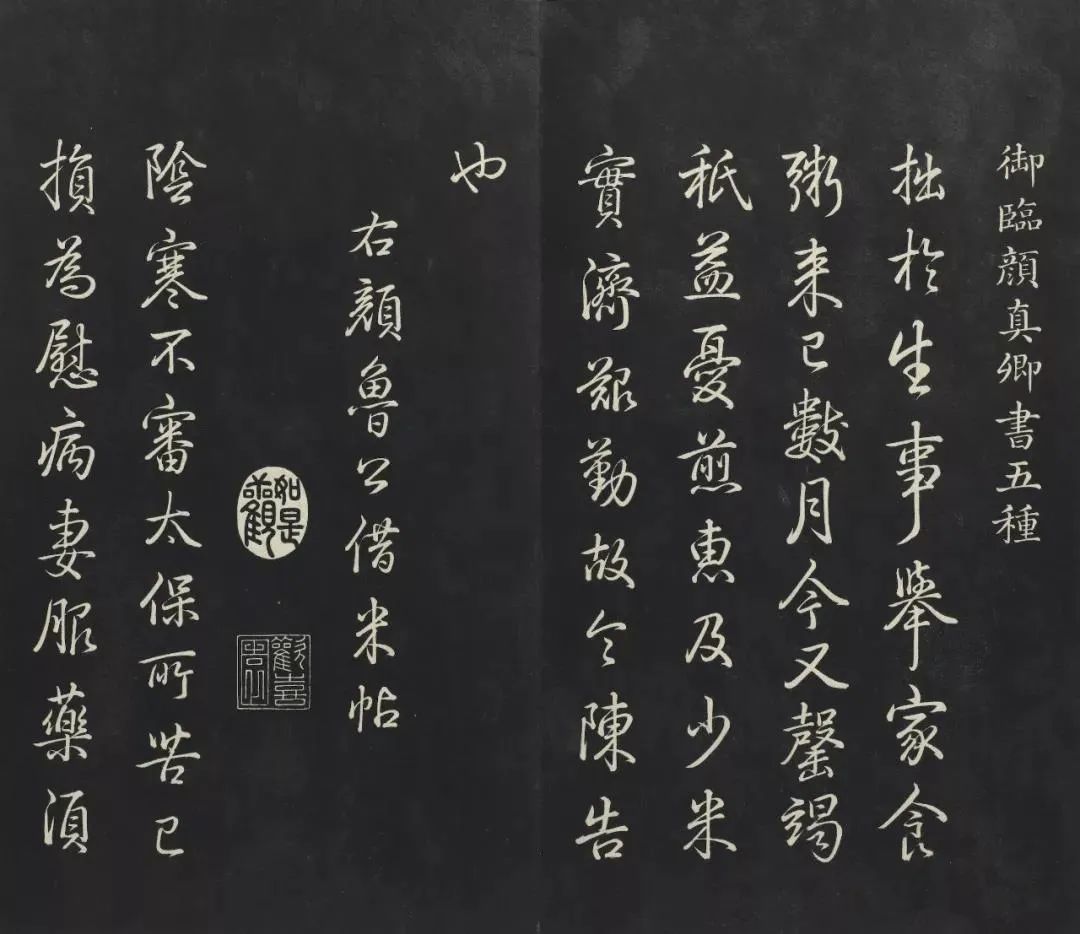 御臨顔真卿書五種
拙於生事舉家食
粥来已數月今又罄竭
秖益憂煎惠及少米
實濟艱勤故令陳告
也
右顔魯公借米帖
如是
觀
陰寒不審太保所苦已
損為慰病妻服藥須